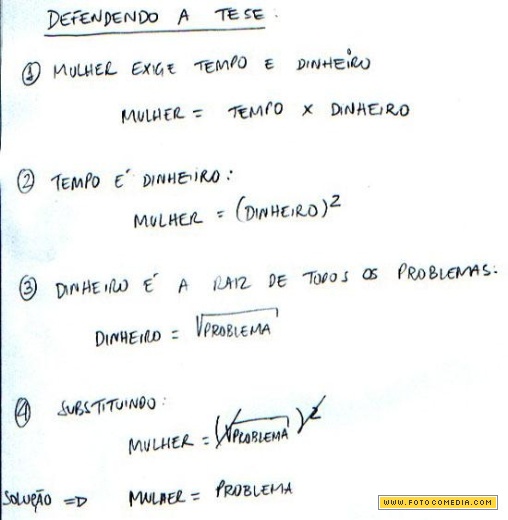 DEFENDENDO A TESE:
① MULHER EXIGE TEMPO E DINHEIRO
MULHER = TEMPO X DINHEIRO
② TEMPO É DINHEIRO:
MULHER = (DINHEIRO)²
③ DINHEIRO É A RAIZ DE TODOS OS PROBLEMAS:
DINHEIRO = √PROBLEMA
④ SUBSTITUINDO:
MULHER = (√PROBLEMA)²
SOLUÇÃO => MULHER = PROBLEMA
WWW.FOTOCOMEDIA.COM